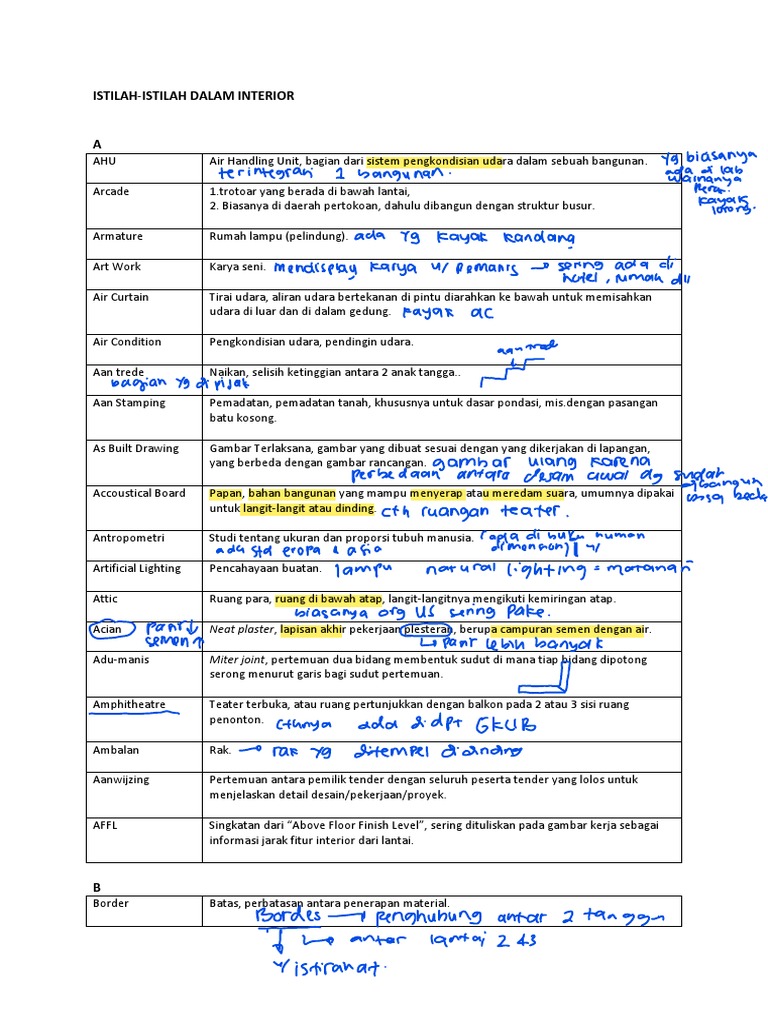 ISTILAH-ISTILAH DALAM INTERIOR
A
AHU Air Handling Unit, bagian dari sistem pengkondisian udara dalam sebuah bangunan.
terintegrasi 1 bangunan.
yg biasanya
ada di lab
warnanya
kayak
lorong.
Arcade 1.trotoar yang berada di bawah lantai,
2. Biasanya di daerah pertokoan, dahulu dibangun dengan struktur busur.
Armature Rumah lampu (pelindung). ada yg kayak kandang
Art Work Karya seni. mendisplay karya u/ pemanis → sering ada di
hotel, rumah dll
Air Curtain Tirai udara, aliran udara bertekanan di pintu diarahkan ke bawah untuk memisahkan
udara di luar dan di dalam gedung. kayak ac
Air Condition Pengkondisian udara, pendingin udara.
aan trede
Aan trede Naikan, selisih ketinggian antara 2 anak tangga..
bagian yg di pijak
Aan Stamping Pemadatan, pemadatan tanah, khususnya untuk dasar pondasi, mis.dengan pasangan
batu kosong.
As Built Drawing Gambar Terlaksana, gambar yang dibuat sesuai dengan yang dikerjakan di lapangan,
yang berbeda dengan gambar rancangan. gambar ulang karena
perbedaan antara desain awal dg sudah
dibangun
Accoustical Board Papan, bahan bangunan yang mampu menyerap atau meredam suara, umumnya dipakai
untuk langit-langit atau dinding. cth ruangan teater.
Antropometri Studi tentang ukuran dan proporsi tubuh manusia. (ada di buku human
dimension) u/
ada std eropa & asia
Artificial Lighting Pencahayaan buatan. lampu natural lighting = matahari
Attic Ruang para, ruang di bawah atap, langit-langitnya mengikuti kemiringan atap.
biasanya org US sering pake.
Acian pasir ↓
semen ↑
Neat plaster, lapisan akhir pekerjaan plesteran, berupa campuran semen dengan air.
↳ pasir lebih banyak
Adu-manis Miter joint, pertemuan dua bidang membentuk sudut di mana tiap bidang dipotong
serong menurut garis bagi sudut pertemuan.
Amphitheatre Teater terbuka, atau ruang pertunjukkan dengan balkon pada 2 atau 3 sisi ruang
penonton. cthnya ada didpt GKUB
Ambalan Rak. → rak yg ditempel didinding
Aanwijzing Pertemuan antara pemilik tender dengan seluruh peserta tender yang lolos untuk
menjelaskan detail desain/pekerjaan/proyek.
AFFL Singkatan dari “Above Floor Finish Level”, sering dituliskan pada gambar kerja sebagai
informasi jarak fitur interior dari lantai.
B
Border Batas, perbatasan antara penerapan material.
Bordes → penghubung antar 2 tangga
↳ antar lantai 2 &3
u/ istirahat.